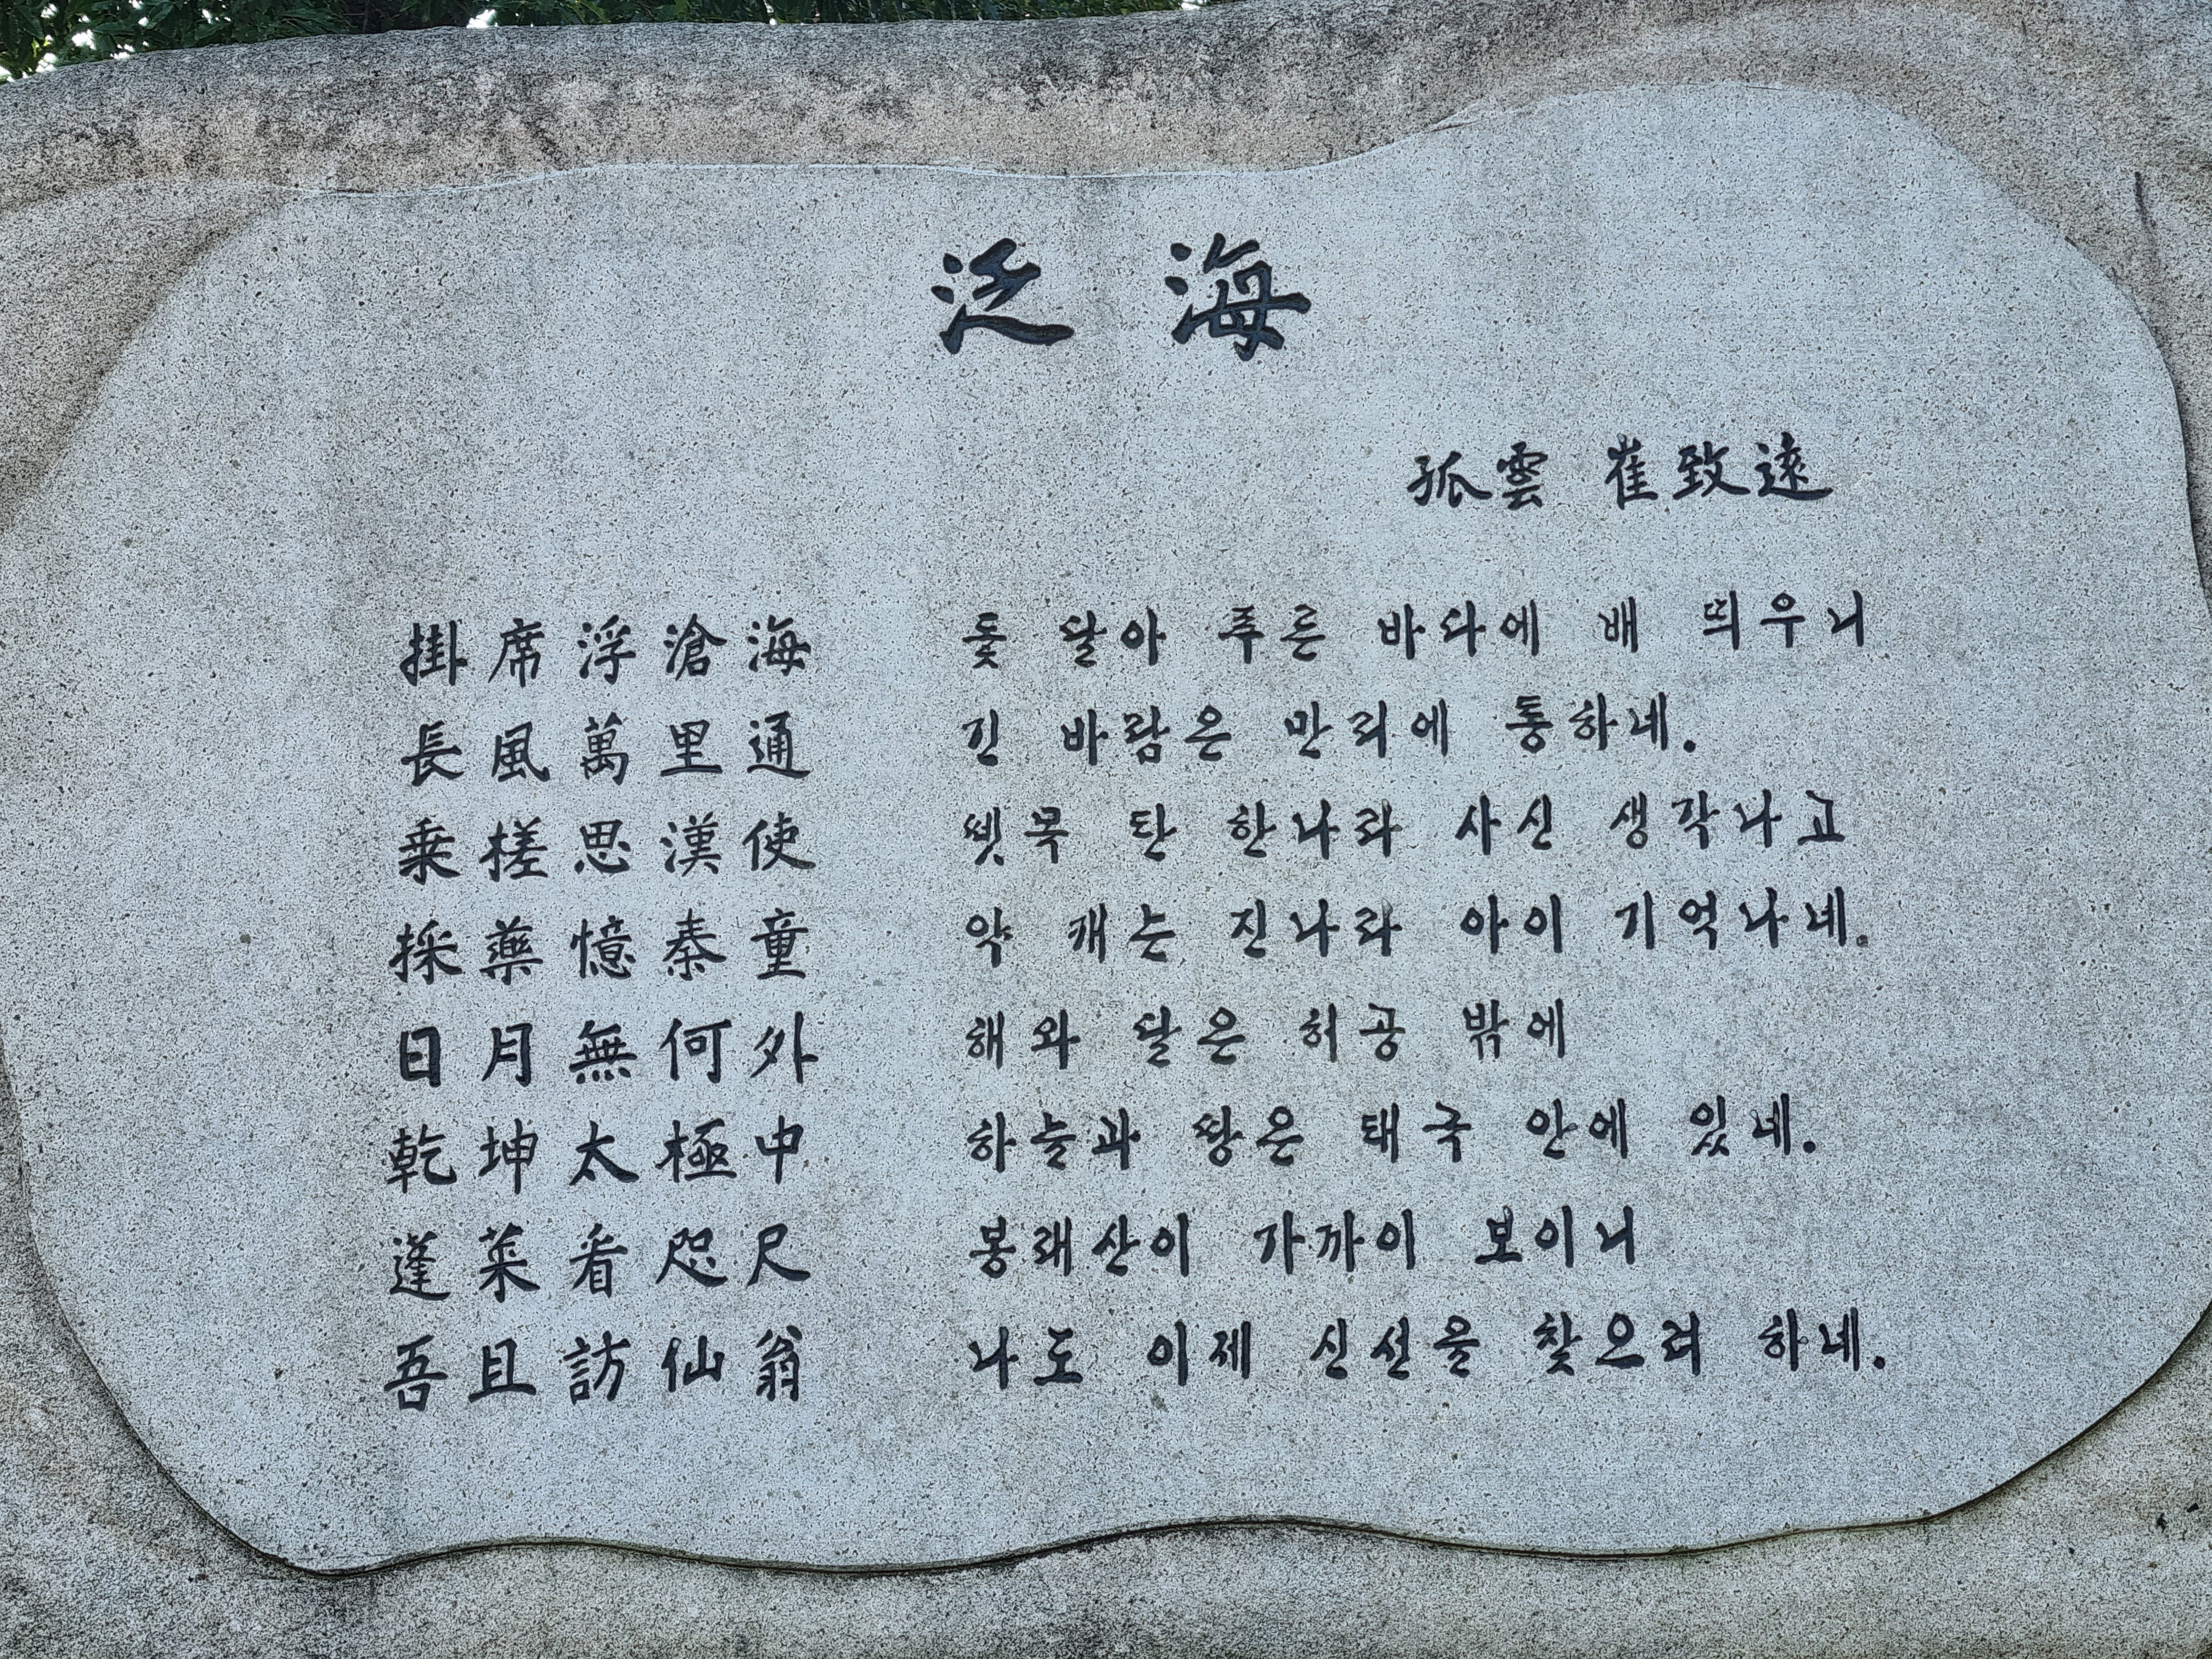 泛海
孤雲 崔致遠
掛席浮滄海
長風萬里通
乗槎思漢使
採藥憶秦童
日月無何外
乾坤太極中
蓬萊看咫尺
吾且訪仙翁
돛 달아 푸른 바다에 배 띄우니
긴 바람은 만리에 통하네.
뗏목 탄 한나라 사신 생각나고
약 캐는 진나라 아이 기억나네.
해와 달은 허공 밖에
하늘과 땅은 태극 안에 있네.
봉래산이 가까이 보이니
나도 이제 신선을 찾으려 하네.